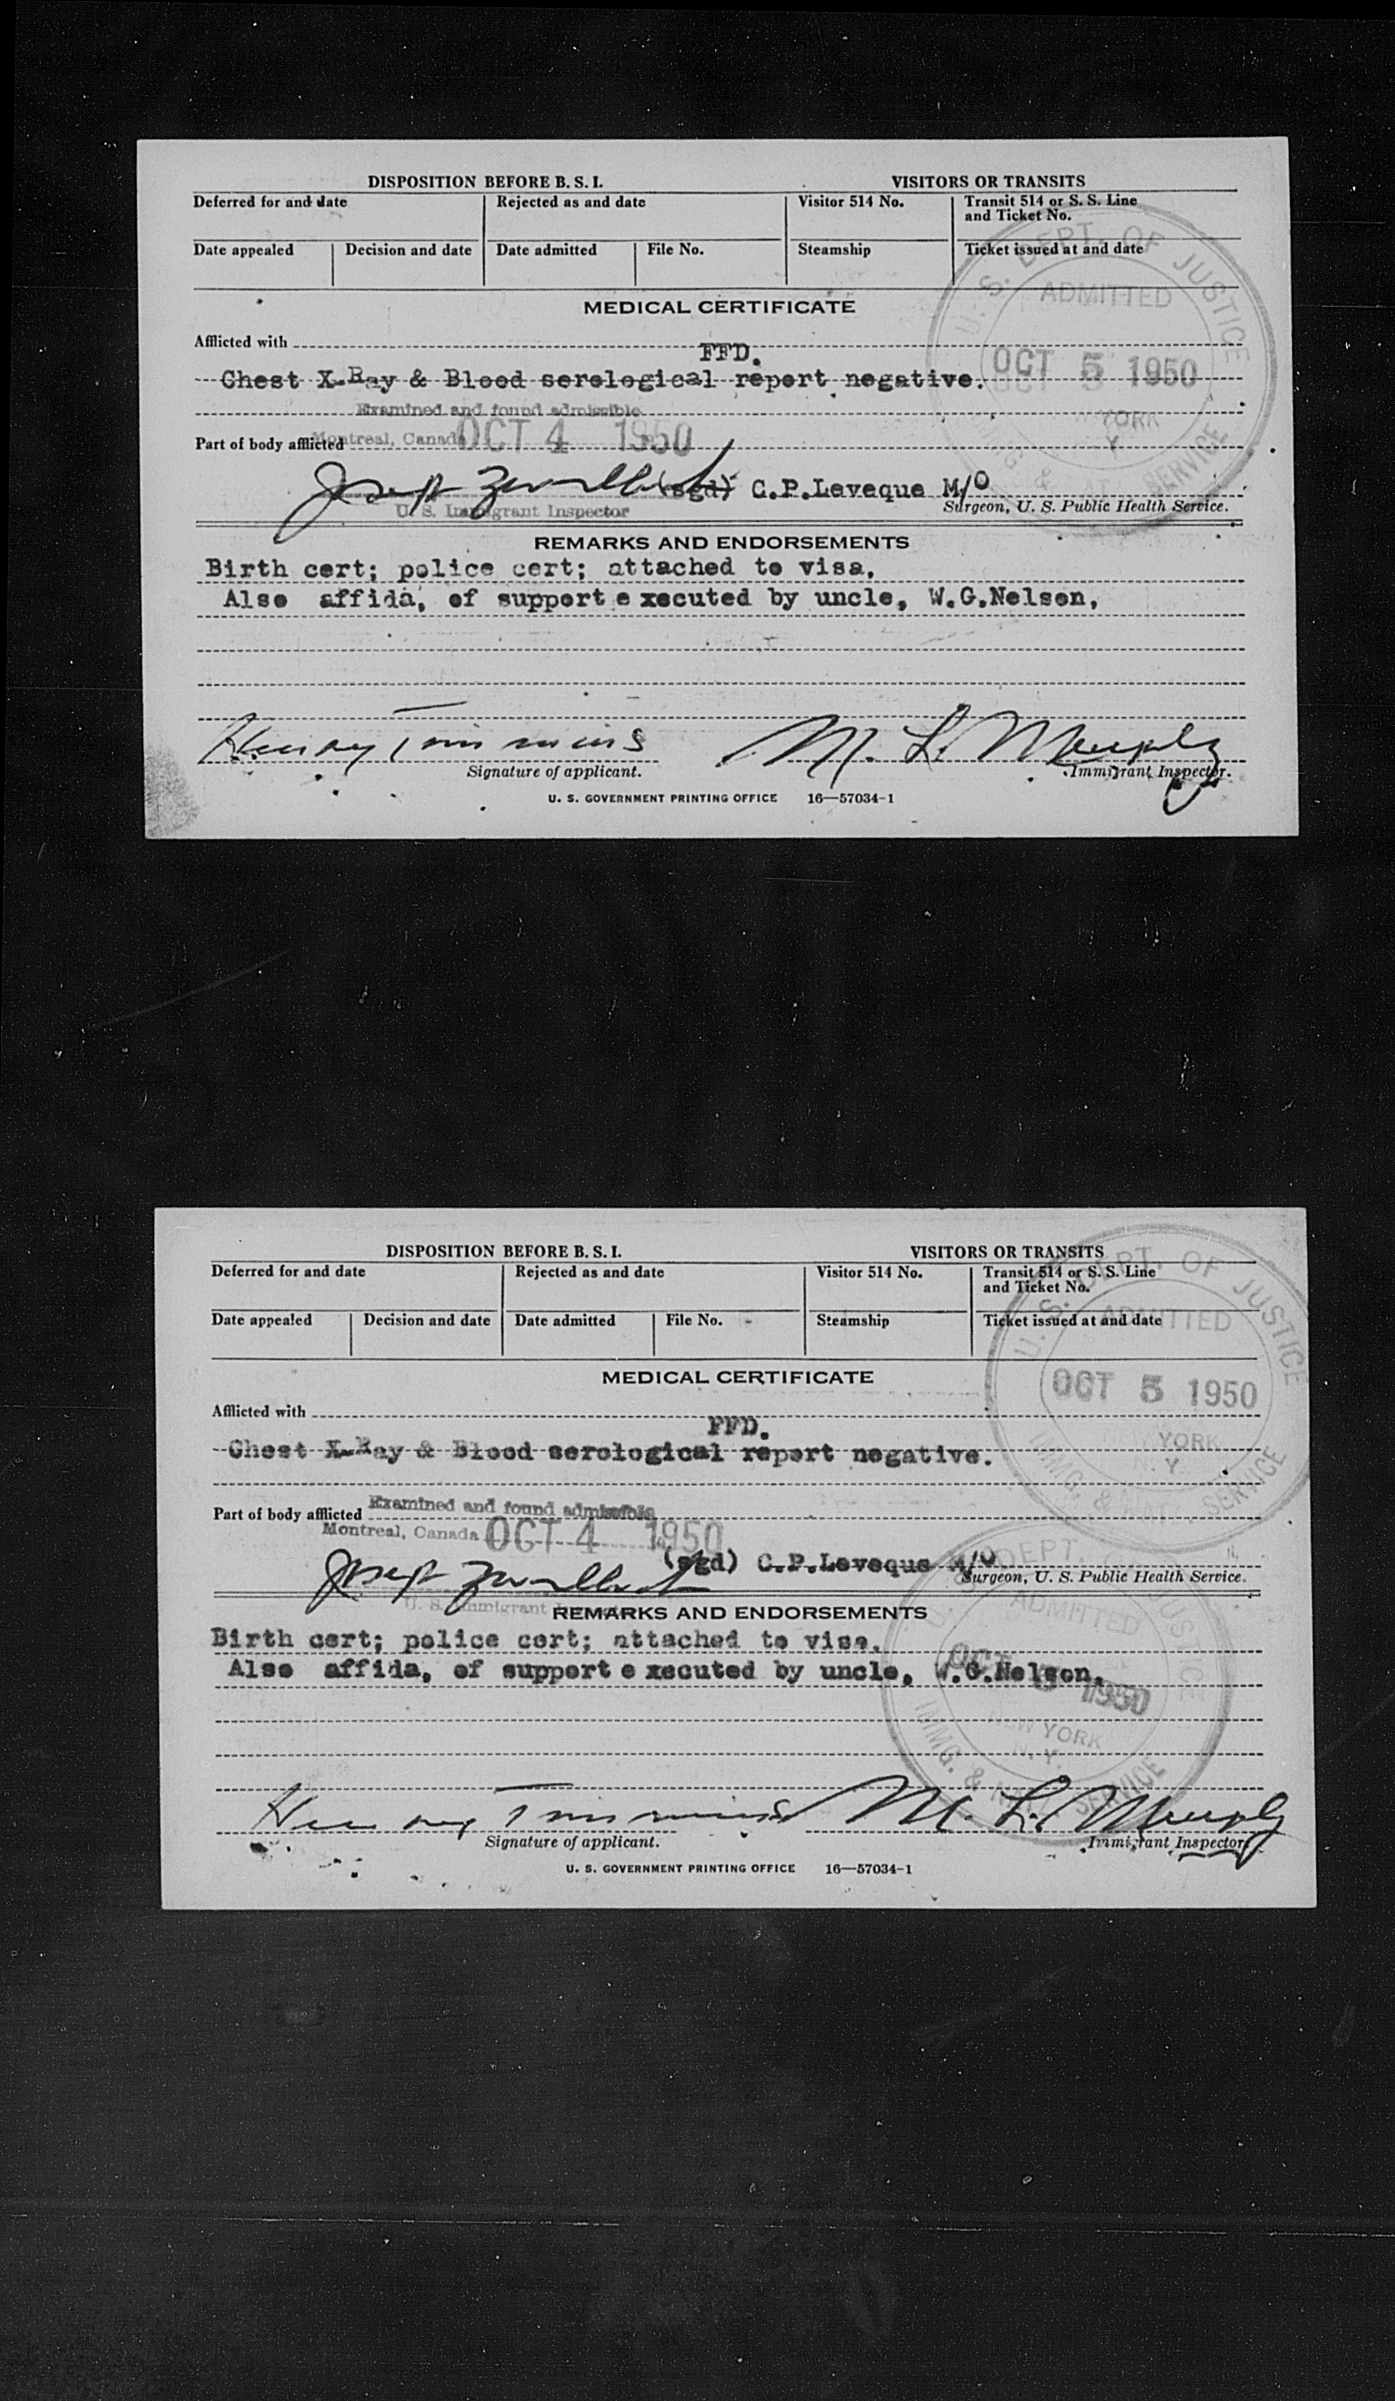 DISPOSITION BEFORE B. S. I. VISITORS OR TRANSITS
Deferred for and date Rejected as and date Visitor 514 No. Transit 514 or S. S. Line
and Ticket No.
Date appealed Decision and date Date admitted File No. Steamship Ticket issued at and date
U. S. DEPT. OF JUSTICE
ADMITTED
OCT 5 1950
YORK
Y
& SERVICE
MEDICAL CERTIFICATE
Afflicted with
FFD.
Chest X-Ray & Blood serological report negative.
Examined and found admissible
Part of body afflicted Montreal, Canada OCT 4 1950
Joseph (sgd) C.P.Leveque M/O
U. S. Immigrant Inspector Surgeon, U. S. Public Health Service.
REMARKS AND ENDORSEMENTS
Birth cert; police cert; attached to visa.
Also affida, of support e xecuted by uncle, W.G.Nelson,
Henry Timmins M. L. Murphy
Signature of applicant. Immigrant Inspector.
U. S. GOVERNMENT PRINTING OFFICE 16—57034-1
DISPOSITION BEFORE B. S. I. VISITORS OR TRANSITS
Deferred for and date Rejected as and date Visitor 514 No. Transit 514 or S. S. Line
and Ticket No.
Date appealed Decision and date Date admitted File No. Steamship Ticket issued at and date
U. S. DEPT. OF JUSTICE
ADMITTED
OCT 5 1950
YORK
N. Y
IMMG. & NAT. SERVICE
MEDICAL CERTIFICATE
Afflicted with
FFD.
Chest X-Ray & Blood serological report negative.
Part of body afflicted Examined and found admissible
Montreal, Canada OCT 4 1950
Joseph (sgd) C.P.Leveque M/O
Surgeon, U. S. Public Health Service.
U. S. Immigrant
REMARKS AND ENDORSEMENTS
Birth cert; police cert; attached to visa.
Also affida, of support e xecuted by uncle, W.G.Nelson.
DEPT. JUSTICE
ADMITTED
OCT 1950
NEW YORK
N. Y.
IMMG. & SERVICE
Henry Timmins M. L. Murphy
Signature of applicant. Immigrant Inspector
U. S. GOVERNMENT PRINTING OFFICE 16—57034-1